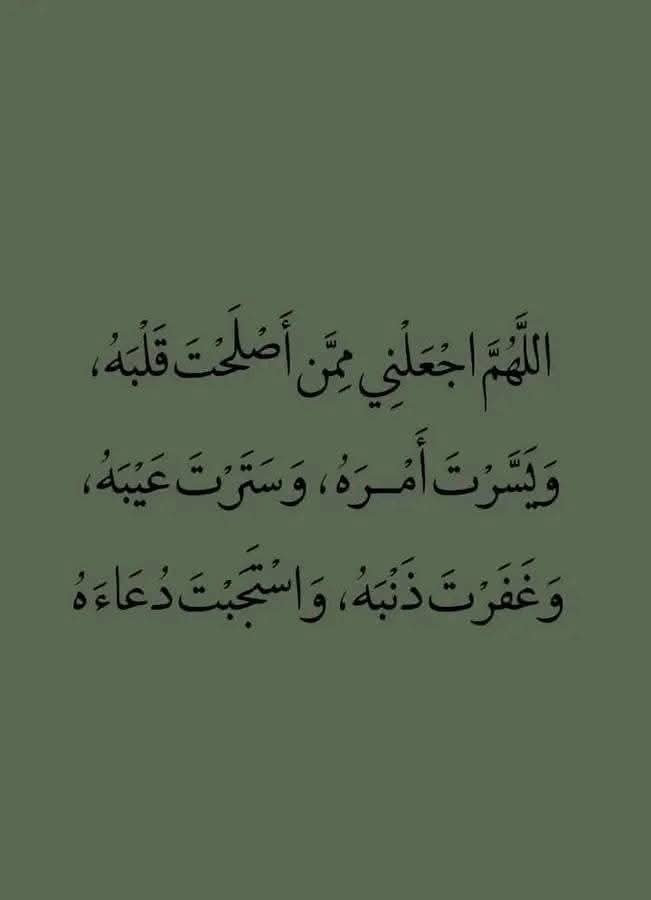 اللَّهُمَّ اجْعَلْنِي مِمَّن أَصْلَحْتَ قَلْبَهُ،
وَيَسَّرْتَ أَمْـرَهُ، وَسَتَرْتَ عَيْبَهُ،
وَغَفَرْتَ ذَنْبَهُ، وَاسْتَجَبْتَ دُعَاءَهُ